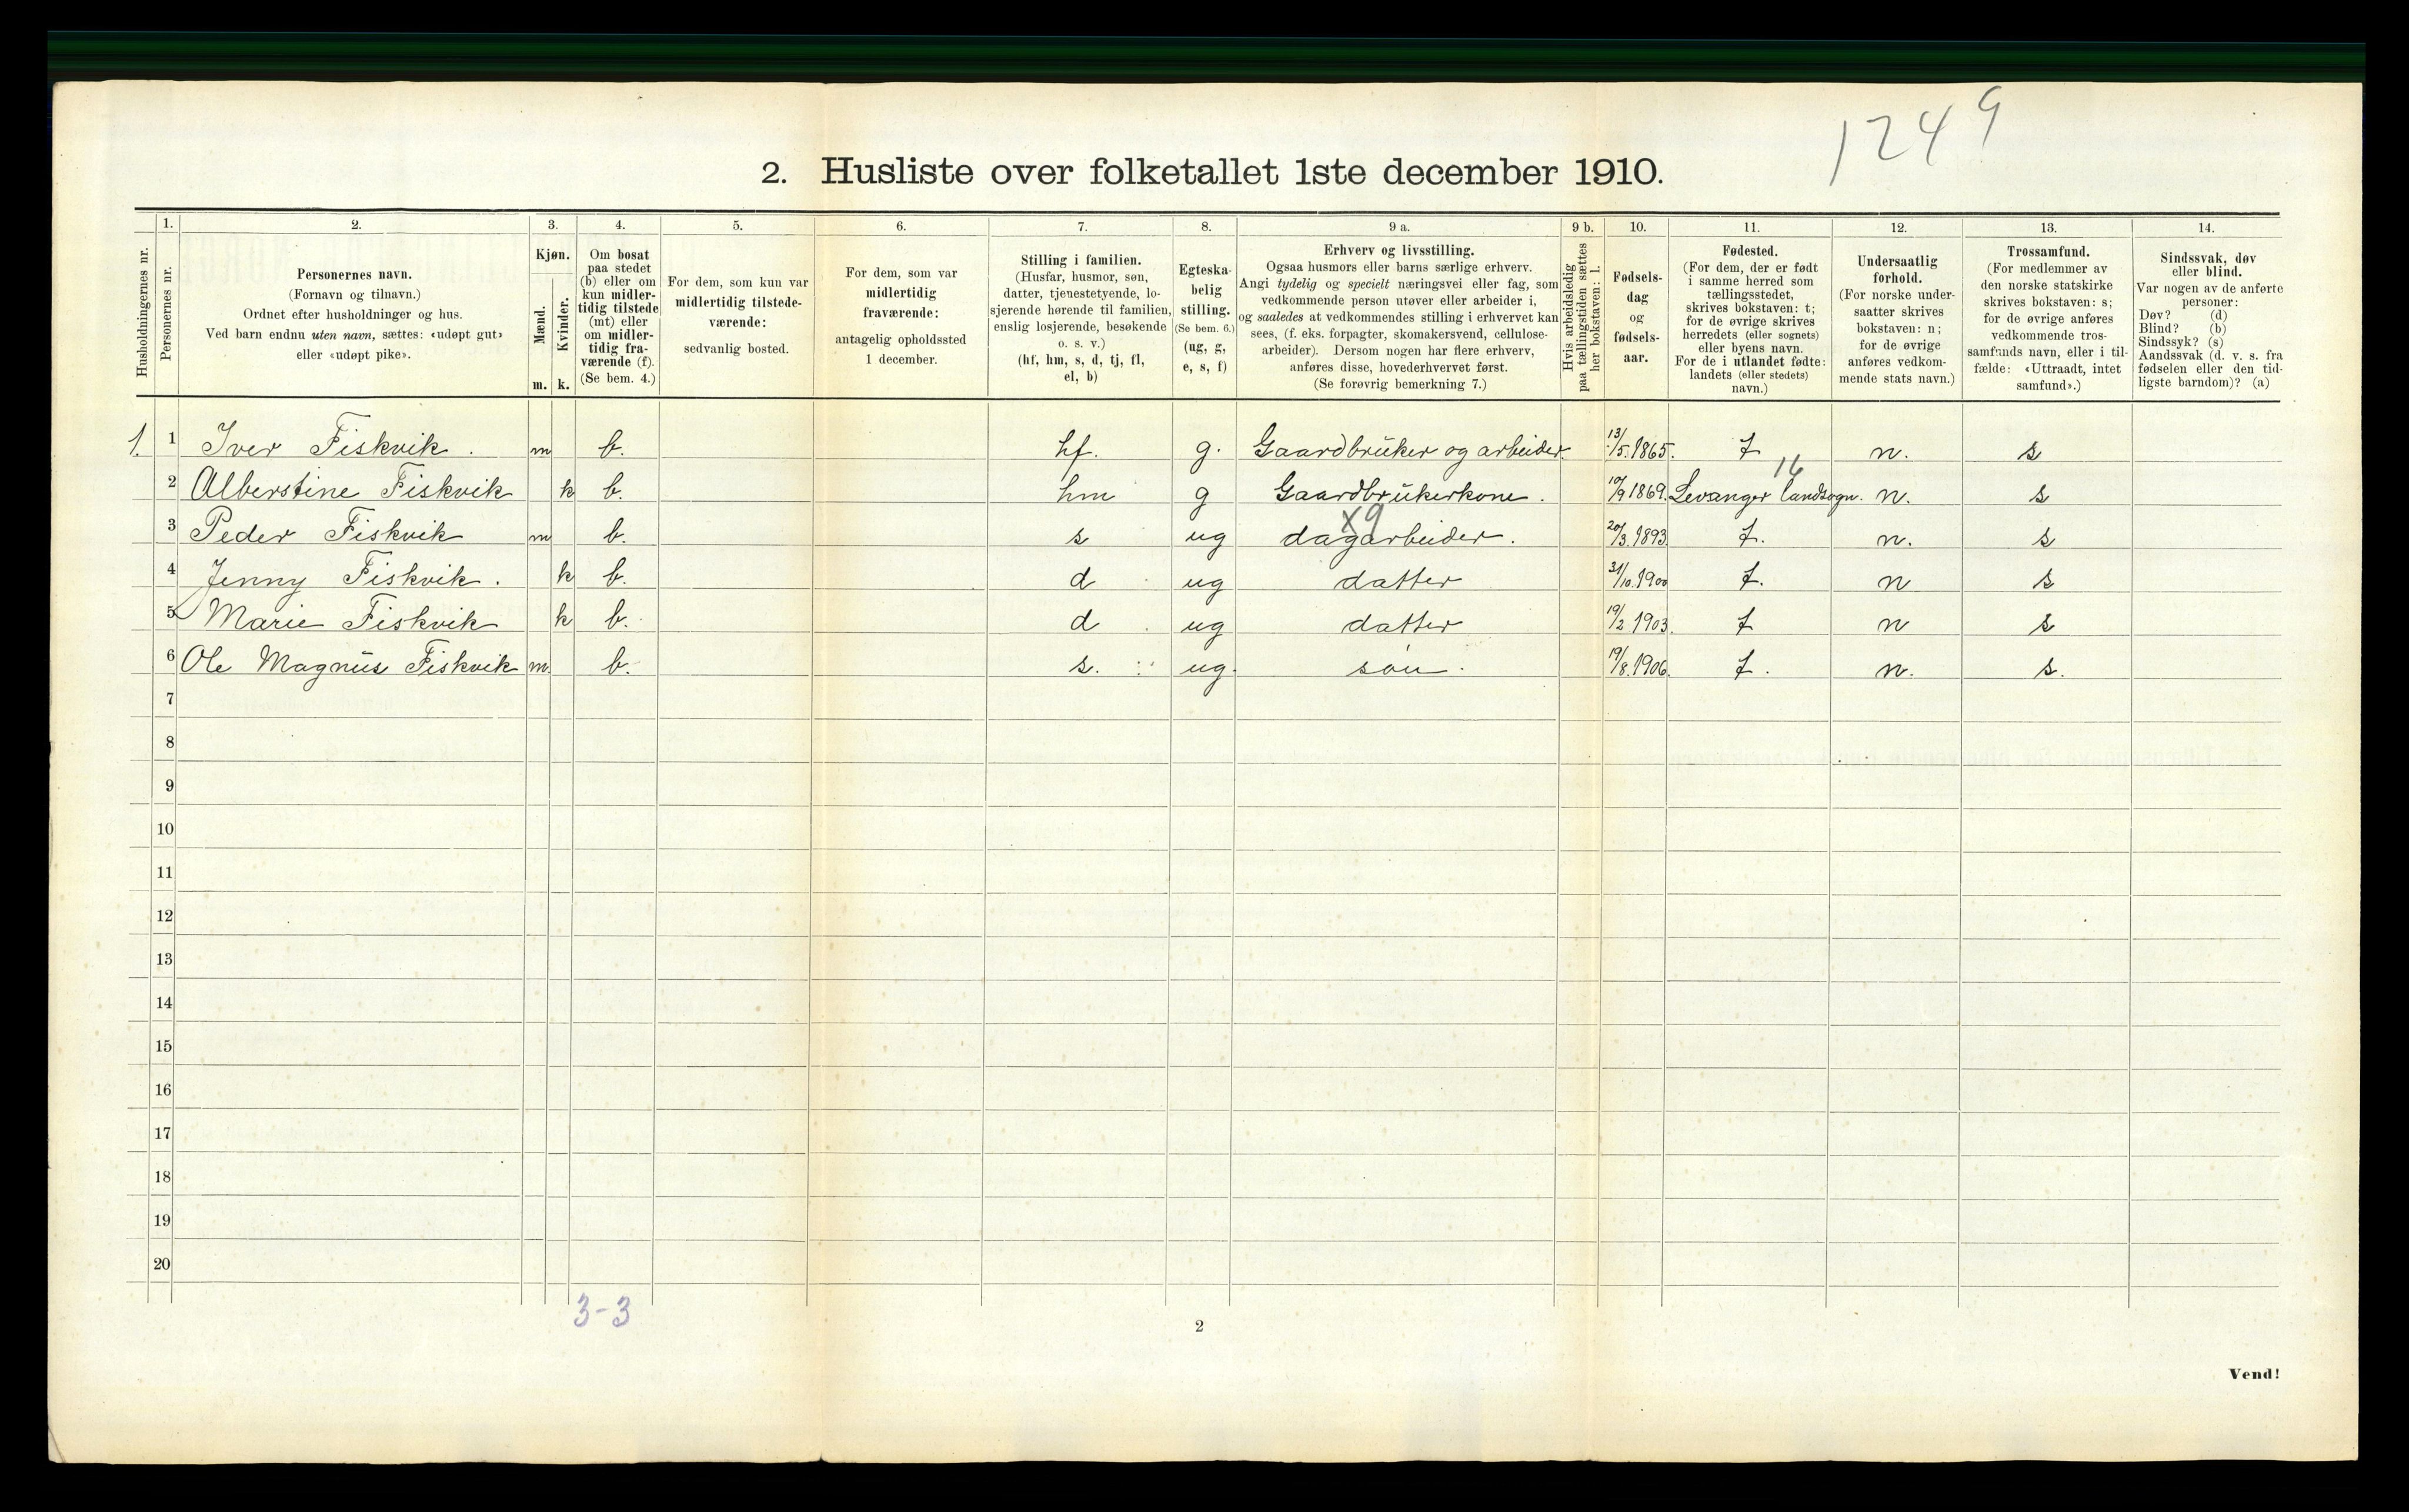 1249
2. Husliste over folketallet 1ste december 1910.
Husholdningernes nr.
1.
Personernes nr.
2.
Personernes navn.
(Fornavn og tilnavn.)
Ordnet efter husholdninger og hus.
Ved barn endnu uten navn, sættes: «udøpt gut»
eller «udøpt pike».
3.
Kjøn.
Mænd.
Kvinder.
m. k.
4.
Om bosat
paa stedet
(b) eller om
kun midler-
tidig tilstede
(mt) eller
om midler-
tidig fra-
værende (f).
(Se bem. 4.)
5.
For dem, som kun var
midlertidig tilstede-
værende:
sedvanlig bosted.
6.
For dem, som var
midlertidig
fraværende:
antagelig opholdssted
1 december.
7.
Stilling i familien.
(Husfar, husmor, søn,
datter, tjenestetyende, lo-
sjerende hørende til familien,
enslig losjerende, besøkende
o. s. v.)
(hf, hm, s, d, tj, fl,
el, b)
8.
Egteska-
belig
stilling.
(Se bem. 6.)
(ug, g,
e, s, f)
9 a.
Erhverv og livsstilling.
Ogsaa husmors eller barns særlige erhverv.
Angi tydelig og specielt næringsvei eller fag, som
vedkommende person utøver eller arbeider i,
og saaledes at vedkommendes stilling i erhvervet kan
sees, (f. eks. forpagter, skomakersvend, cellulose-
arbeider). Dersom nogen har flere erhverv,
anføres disse, hovederhvervet først.
(Se forøvrig bemerkning 7.)
9 b.
Hvis arbeidsledig
paa tællingstiden sættes
her bokstaven: l.
10.
Fødsels-
dag
og
fødsels-
aar.
11.
Fødested.
(For dem, der er født
i samme herred som
tællingsstedet,
skrives bokstaven: t;
for de øvrige skrives
herredets (eller sognets)
eller byens navn.
For de i utlandet fødte:
landets (eller stedets)
navn.)
12.
Undersaatlig
forhold.
(For norske under-
saatter skrives
bokstaven: n;
for de øvrige
anføres vedkom-
mende stats navn.)
13.
Trossamfund.
(For medlemmer av
den norske statskirke
skrives bokstaven: s;
for de øvrige anføres
vedkommende tros-
samfunds navn, eller i til-
fælde: «Uttraadt, intet
samfund».)
14.
Sindssvak, døv
eller blind.
Var nogen av de anførte
personer:
Døv? (d)
Blind? (b)
Sindssyk? (s)
Aandssvak (d. v. s. fra
fødselen eller den tid-
ligste barndom)? (a)
1. 1 Iver Fiskvik. m b. hf. g. Gaardbrüker og arbeider. 13/5. 1865. t n. s
16
2 Alberstine Fiskvik k b. hm g Gaardbrükerkone. 10/9 1869. Levanger landsogn. n. s
x9
3 Peder Fiskvik m b. s ug dagarbeider. 20/3. 1893. t. n. s
4 Jenny Fiskvik. k b. d ug datter 31/10. 1900 t. n s
5 Marie Fiskvik k b. d ug datter 19/2 1903. t n s
6 Ole Magnüs Fiskvik m. b. s. ug. søn. 19/8. 1906. t. n. s.
7
8
9
10
11
12
13
14
15
16
17
18
19
20
3-3
2
Vend!